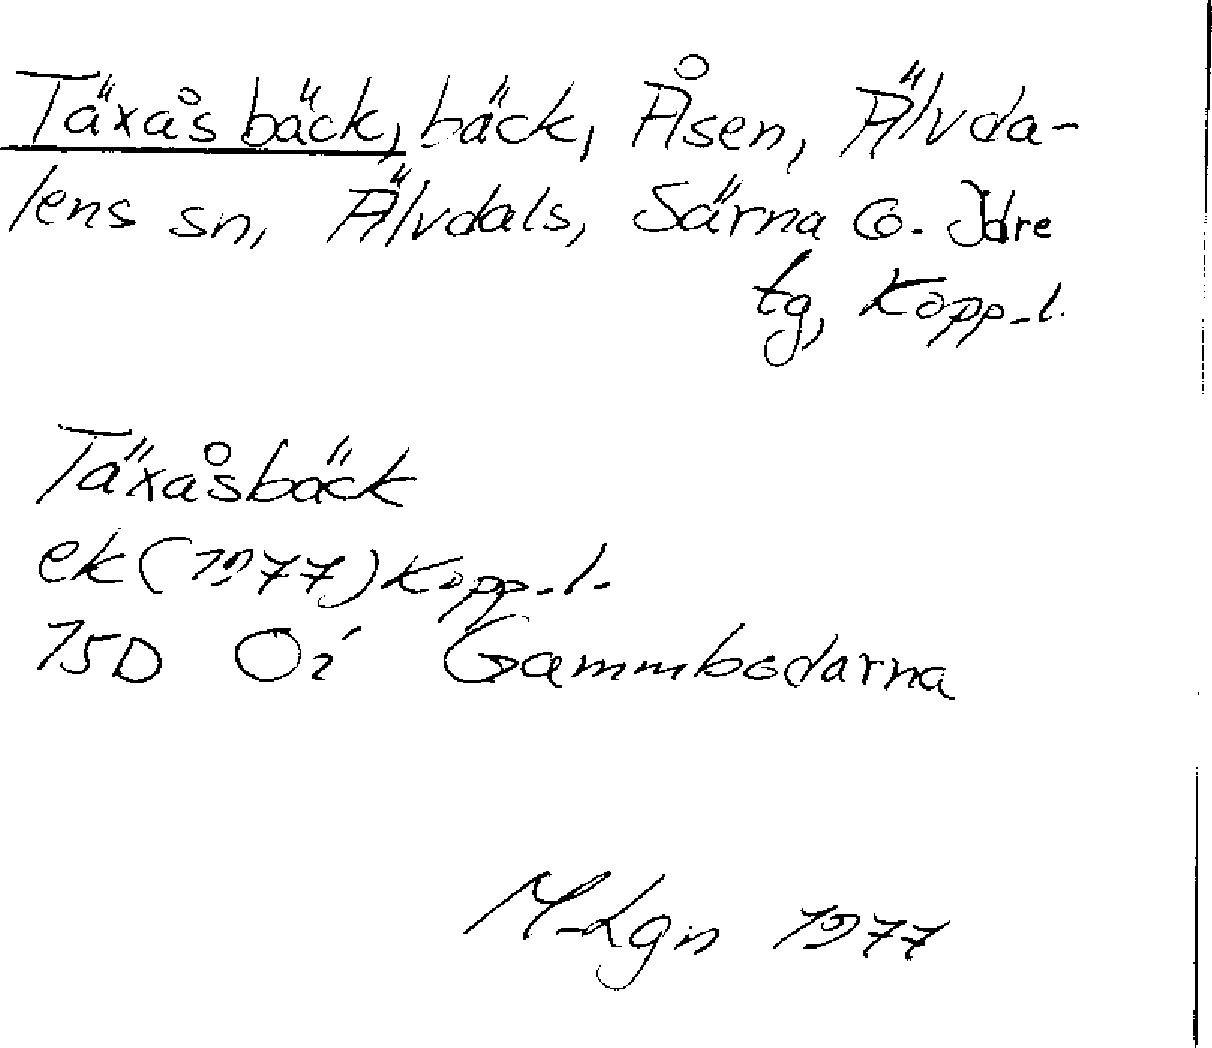 Täxåsbäck, bäck, Åsen, Älvda-
lens sn, Älvdals, Särna o. Idre
tg, Kopp.l.
Täxåsbäck
ek (1977) Kopp.l.
15D Öi Gammbodarna
M.Lgn 1977